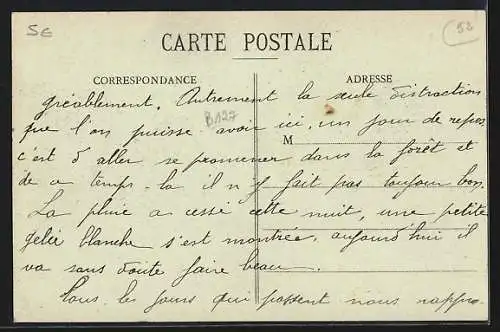 5E
52
CARTE POSTALE
CORRESPONDANCE
ADRESSE
B127
M
gréablement. Autrement la seule distraction
que l'on puisse avoir ici, un jour de repos
c'est d'aller se promener dans la forêt et
de ce temps-la il n'y fait pas toujours bon.
La pluie a cessé cette nuit, une petite
gelée blanche s'est montrée, aujourd'hui il
va sans doute faire beau.
Tous les jours qui passent nous rappro-